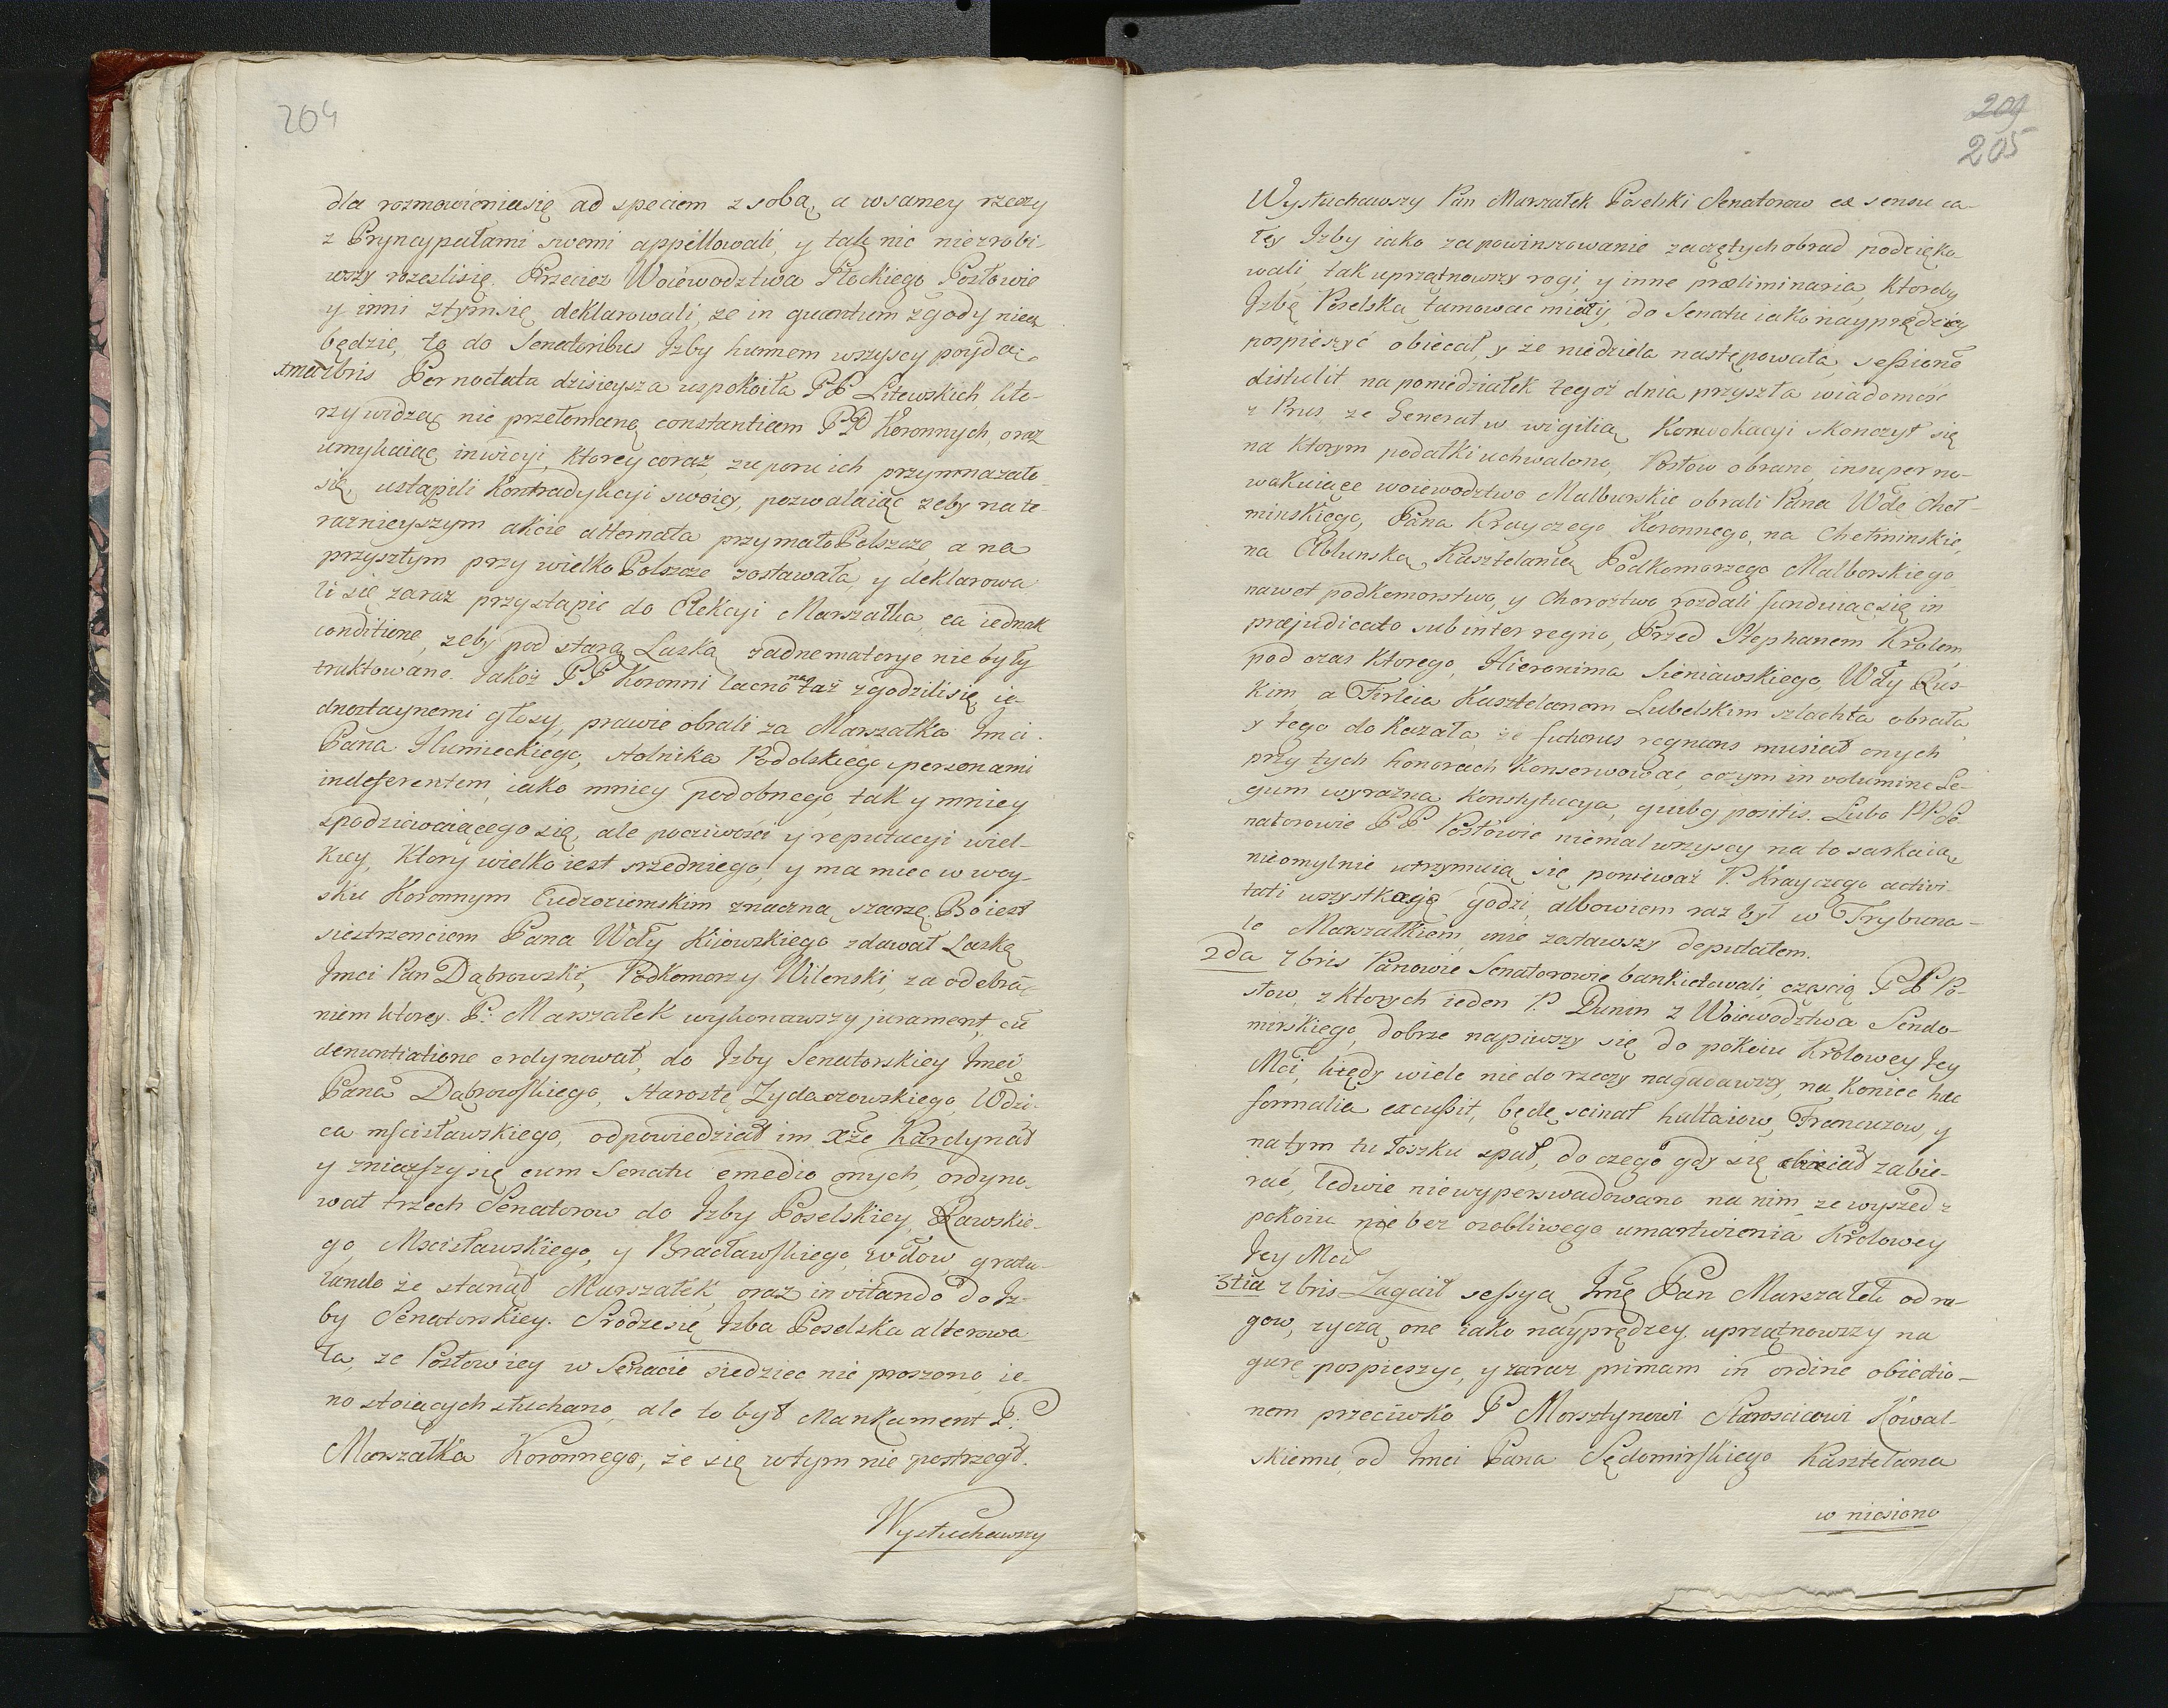 204
dla rozmowieniasię ad speciem z sobą, a wsamey rzeczy
z Pryncypałami swemi appellowali, y tak nic niezrobi-
wszy rozeslisię. Przecież Woiewodztwa Płockiego Posłowie
y inni ztymsię deklarowali, ze in quantum zgody nie
będzie, to do Senatoribus Izby hurmem wszyscy poyda.
1ma 7bris Pernoctata dzisieysza uspokoiła PP Litewskich, kto-
rzy widząc nie przełomaną constantiam PP Koronnych, oraz
umykaiąc inwicyi, ktorey coraz zuporu ich przymnazało
się, ustąpili Kontradykcyi swoiey, pozwalaiąc zeby na te
raznieyszym akcie alternata przy mało Polszcze a na
przyszłym przy wielko Polszcze zostawała, y deklarowa
li się zaraz przystąpić do Elekcyi Marszałka, ea iednak
conditione, zeby pod starą Laską zadne materye nie były
traktowane. Jakoż PP Koronni łacno na taż zgodzilisię, ie-
dnostaynemi głosy, prawie obrali za Marszałka Jmci
Pana Humieckiego, stolnika Podolskiego personami
indeferentem, iako mniey podobnego, tak y mniey
spodziewaiącego się, ale poczciwości y reputacyi wiel-
kiey, Ktory wielko iest srzedniego, y ma miec w woy-
sku Koronnym Cudzoziemskim znaczną szarżę. Bo iest
siestrzencem Pana Wdy Kiiowskiego zdawał Laskę
Jmci Pan Dąbrowski, Podkomorzy Wilenski, za odebra-
niem ktorey. P. Marszałek wykonawszy jurament, cũ
denuntiatione ordynował, do Izby Senatorskiey Jmci
Pana Dąbrowskiego, Starostę Zydaczowskiego, Wdzi-
ca mscisławskiego, odpowiedział im Xże Kardynał
y zniozszy się cum Senatu emedio onych, ordyno-
wał trzech Senatorow do Izby Poselskiey, Rawskie-
go, Mscisławskiego, y Bracławskiego, wdow, gratu-
lando że stanął Marszałek, oraz invitando do Iz-
by Senatorskiey. Srodzesię Izba Poselska alterowa
ła, ze Posłow iey w Senacie siedziec nie proszono, ie-
no stoiących słuchano, ale to był Mankament P.
Marszałka Koronnego, że się wtym nie postrzegł.
Wysłuchawszy
209
205
Wysłuchawszy Pan Marszałek Poselski Senatorow ex sensu ca-
łey Izby iako za powinszowanie zaczętych obrad podzięko
wali, tak uprzątnowszy rogi, y inne præliminaria, Ktoreby
Izbę Poselską tamowac miały, do Senatu iako nayprędzey
pospieszyć obiecał, y ze niedziela następowała sessione
distulit na poniedziałek tegoż dnia przyszła wiadomość
z Prus, ze Generał w wigilią Konwokacyi skonczył się
na ktorym podatki uchwalono, Posłow obrano, insuper no-
wakuiące woiewodztwo Malburskie obrali Pana Wdę Cheł-
minskiego, Pana Krayczego Koronnego, na Chełminskie,
na Elblunską Kasztelanię Podkomorzego Malborskiego
nawet podkomorstwo, y Chorostwo rozdali funduiąc się in
præjudicato sub inter regno, Przed Stephanem Krolem,
pod czas Ktorego, Hieronima Sieniawskiego, Wdy Rus-
kim, a Firleia Kasztelanem Lubelskim szlachta obrała,
y tego dokazała, że futurus regnans musiał onych
przy tych honorach konserwować, czym in volumine Le-
gum wyrazna Konstytucya, quibq positis. Lubo PP. Se
natorowie PP Posłowie niemal wszyscy na to sarkaią,
nieomylnie utrzymuią się ponieważ P. Krayczego activi-
tati wszystkają godzi, albowiem raz był w Trybuna-
le Marszałkiem, nie zostawszy deputatem.
2da 7bris Panowie Senatorowie bankietowali, częscią PP Po-
słow, z ktorych ieden P. Dunin z Woiewodztwa Sendo-
mirskiego, dobrze napiwszy się do pokoiu Krolowey Jey
Mci, kiedy wiele nie do rzeczy nagadawszy, na koniec hæc
formalia excussit, będę scinał hultaiow, Francuzow, y
na tym tu łoszku spał, do czego gdy się chciał zabie-
rać, ledwie niewyperswadowano na nim, ze wyszed z
pokoiu nie bez osobliwego umartwienia Krolowey
Jey Mci
3tia 7bris Zagaił sessyą Jmę Pan Marszałek od ro-
gow, zycząc one iako nayprędzey uprzątnowszy na
gurę pospieszyc, y zaraz primam in ordine obiectio-
nem przeciwko P Morsztynowi Staroscicowi Kowal-
skiemu, od Jmci Pana Sędomirskiego Kasztelana
w niesiono